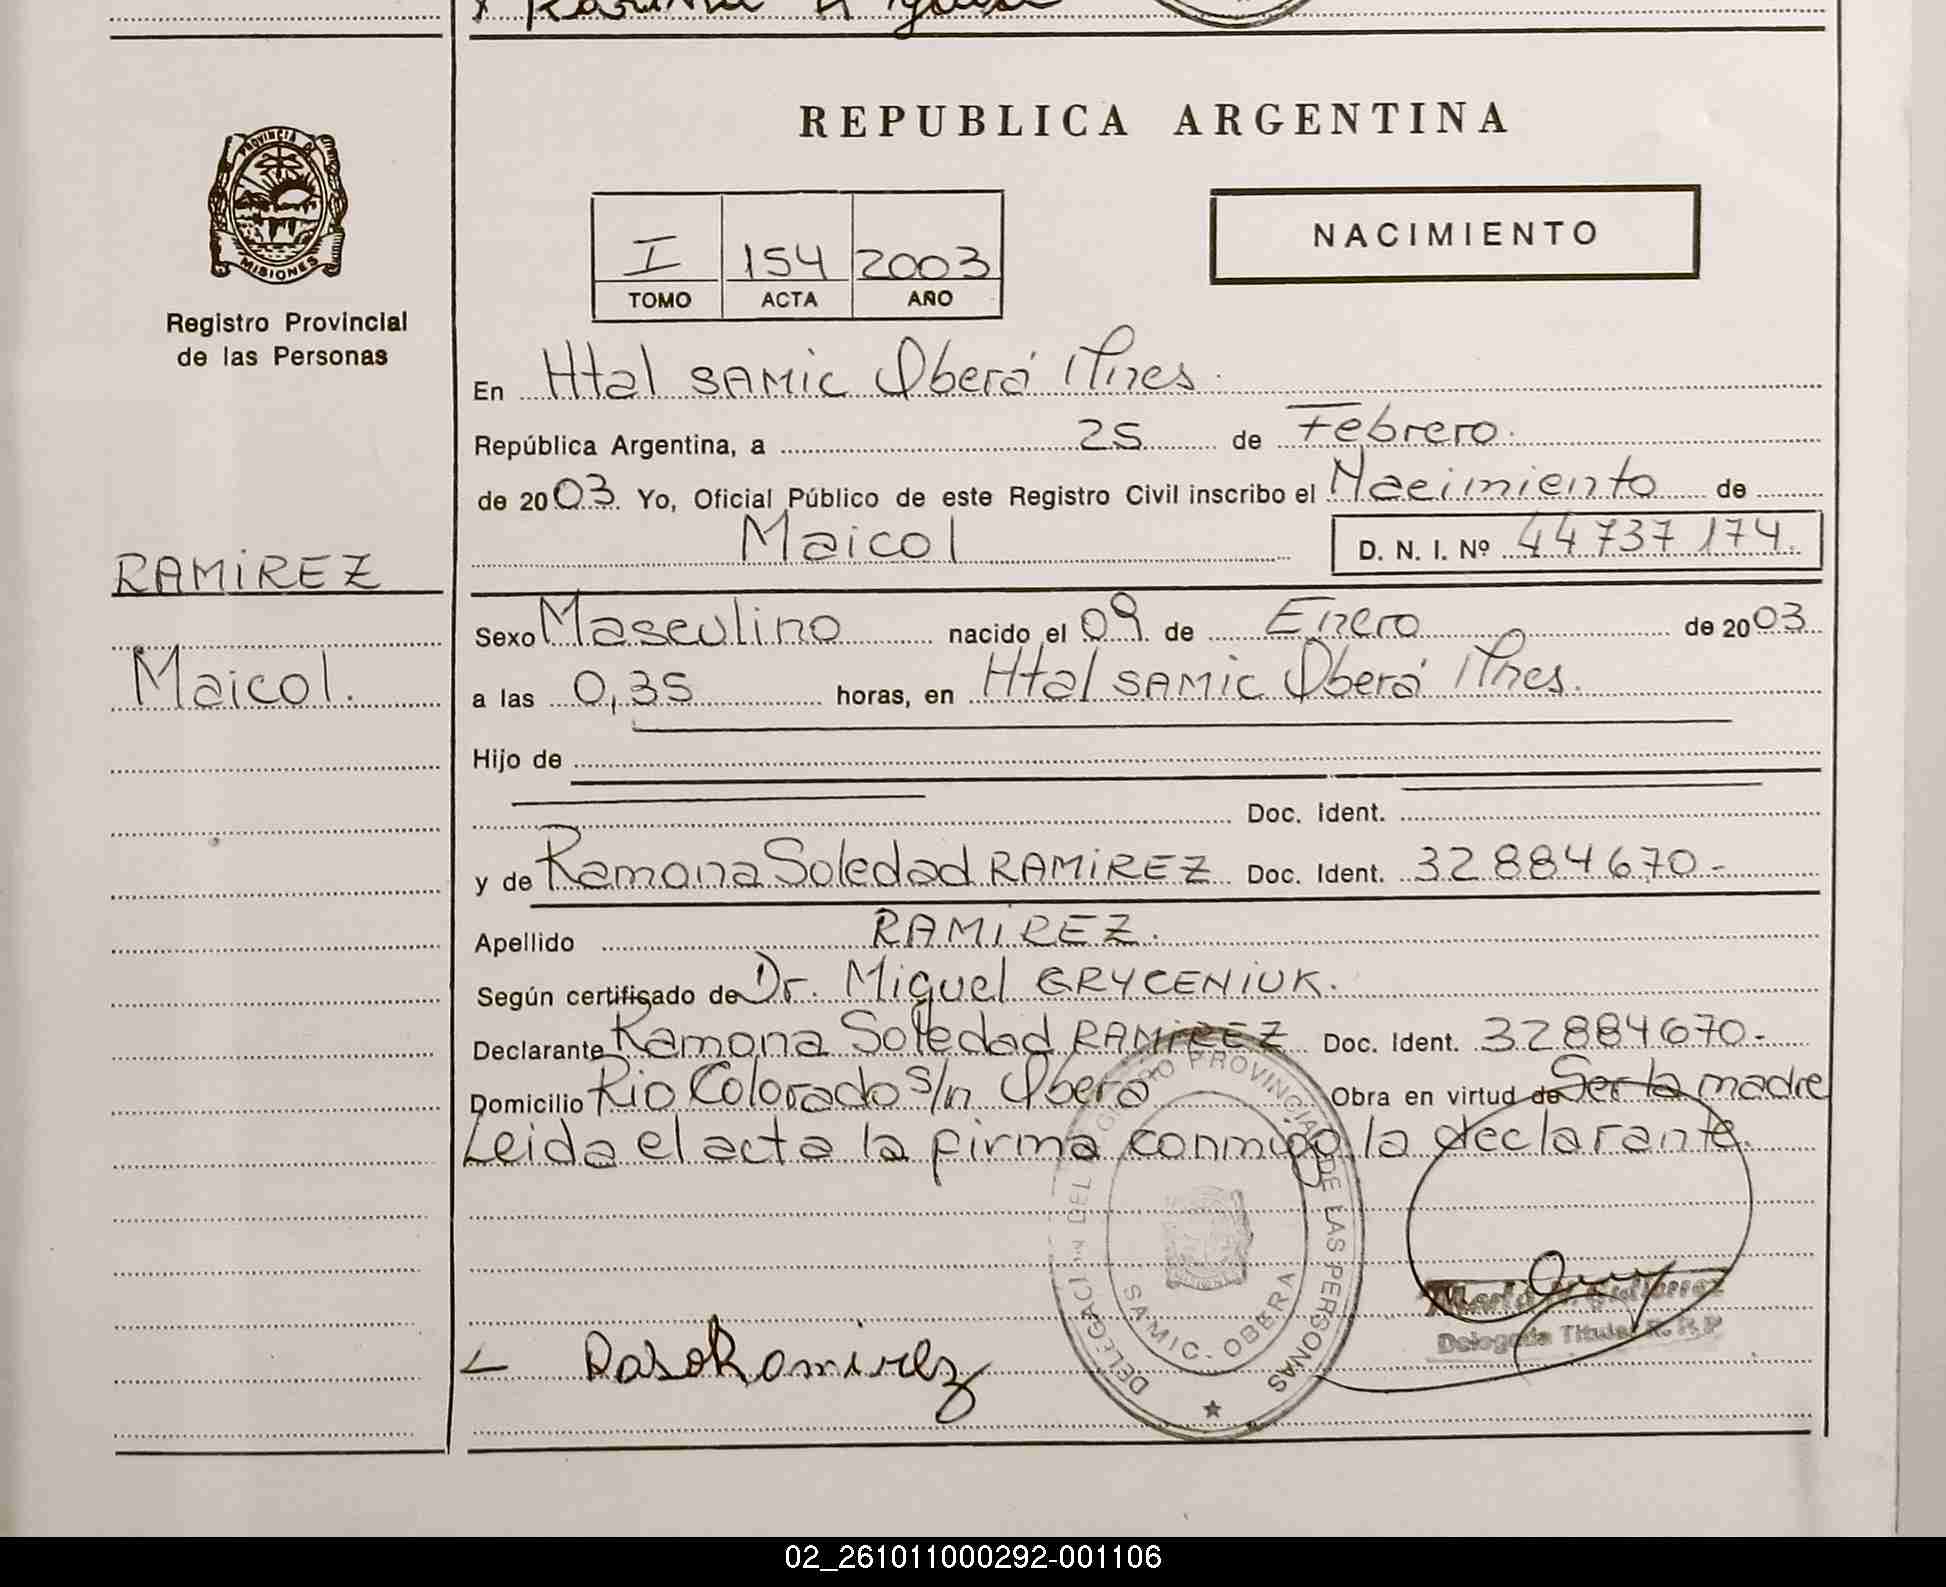 PROVINCIA DE
MISIONES
Registro Provincial
de las Personas
RAMIREZ
Maicol.
REPUBLICA ARGENTINA
I 154 2003
TOMO ACTA AÑO
NACIMIENTO
En Htal SAMIC Oberá Mnes.
República Argentina, a 25 de Febrero.
de 2003. Yo, Oficial Público de este Registro Civil inscribo el Nacimiento de
Maicol D. N. I. Nº 44 737 174.
Sexo Masculino nacido el 09 de Enero de 2003
a las 0,35 horas, en Htal SAMIC Oberá Mnes.
Hijo de
Doc. Ident.
y de Ramona Soledad RAMIREZ Doc. Ident. 32 884 670.-
Apellido RAMIREZ.
Según certificado de Dr. Miguel GRYCENIUK.
Declarante Ramona Soledad RAMIREZ Doc. Ident. 32884670.-
Domicilio Rio Colorado s/n Oberá Obra en virtud de Ser la madre
Leida el acta la firma conmigo la declarante.
DELEGACION DEL REGISTRO PROVINCIAL DE LAS PERSONAS
SAMIC. OBERA
Delegada Titular R.P.P
Ramirez
02_261011000292-001106